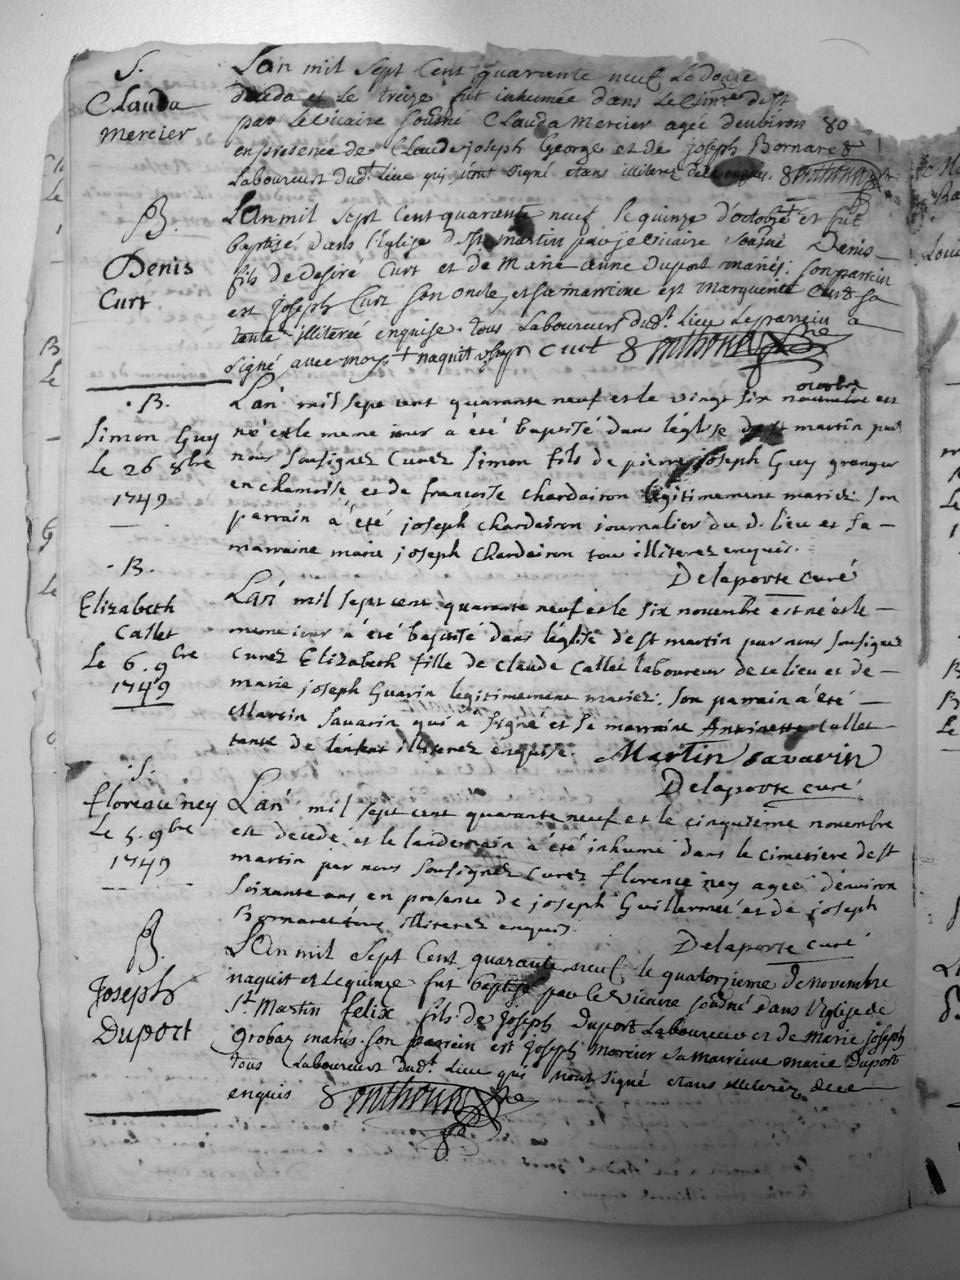 S.
Clauda
mercier
Lan mil sept Cent quarante neuf Le douze
deceda et Le treize fut inhumée dans Le Cim.re dest
par Levicaire soussné Clauda Mercier agée denviron 80
en presence de Claude joseph George et de joseph Bornarel
Laboureurs dud.t Lieu qui nont signé etans illiterez
B.
Denis
Curt
Lan mil sept Cent quarante neuf le quinze d'octobre et fut
baptisé dans l'Eglise d St martin par je vicaire soussné Denis
fils de Desiré Curt et de Marie anne Duport mariés. son parrein
est joseph Curt son oncle, et sa marreine est marguerite Curt sa
tante illiterée enquise. tous Laboureurs dud.t lieu Le parrein a
signé avec moy + naquit Curt
B.
Simon Guy
le 26 8bre
1749
Lan mil sept cent quarante neuf et le vingt six novembre octobre est
né et le meme iour a été baptisé dans l'eglise de st martin par
nous soussignez Curez Simon fils de pierre joseph Guy granger
en chamoise et de francoise chardairon legitimement mariez son
parrain a été joseph chardairon journalier du d. lieu et sa
marraine marie joseph Chardairon tous illiterez enquis.
Delaporte curé
B.
Elizabeth
Callet
Le 6. 9bre
1749
Lan mil sept cent quarante neuf et le six novembre est né et le
meme iour a été baptisé dans l'eglise de st martin par nous soussignez
Curez Elizabeth fille de claude Callet laboureur de ce lieu et de
marie joseph Guarin legitimement mariez. Son parrain a été
Martin Savarin qui a signé et sa marraine Antoinette Callet
tante de lenfant illiterez enquise. Martin Savarin
Delaporte curé
S.
floreau ney
Le 5. 9bre
1749
Lan mil sept cent quarante neuf et le cinquième novembre
est decedé et le landemain a été inhumé dans le cimetiere de st
martin par nous soussignez Curez florence ney agée denviron
soixante ans en presence de joseph Guillermet et de joseph
Bornarel tous illiterez enquis.
Delaporte curé
B.
Joseph
Duport
Lan mil sept Cent quarante neuf le quatorzieme de Novembre
naquit et Lequinze fut baptisé par Le Vicaire soussné dans l'Eglise de
St Martin felix fils de joseph Duport Laboureur et de Marie joseph
Grobaz mariés. son parrein est joseph Morcier sa marreine marie Duport
tous Laboureurs dud.t Lieu qui n'ont signé etans illiterez de ce
enquis